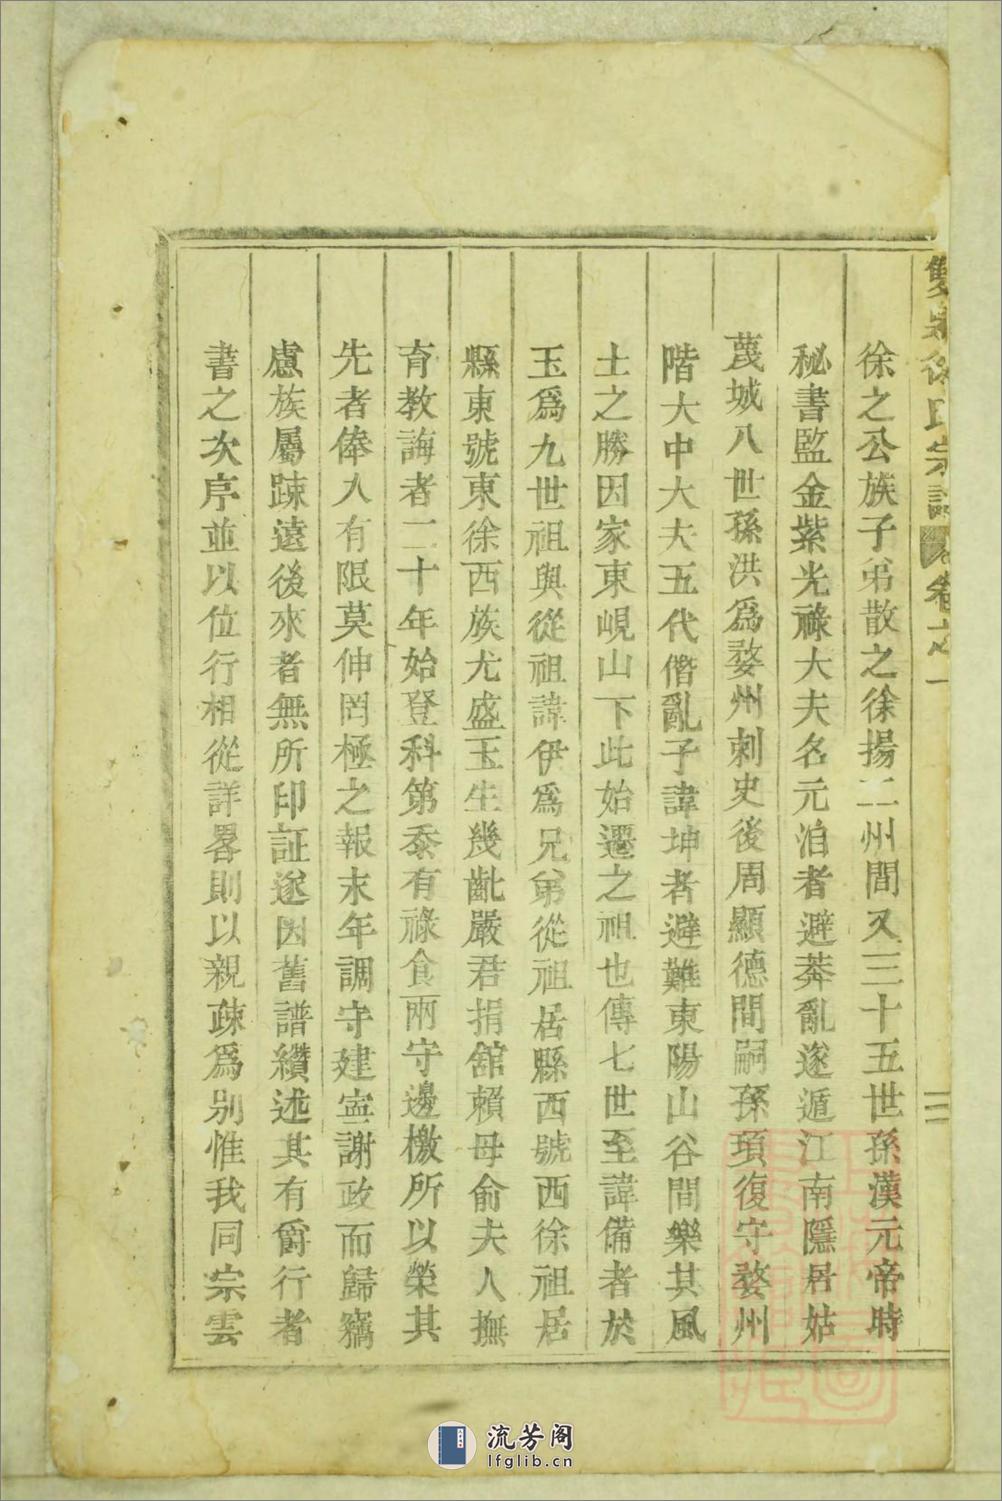 雙泉徐氏宗譜 卷之一 二
徐之公族子弟散之徐揚二州間又三十五世孫漢元帝時
秘書監金紫光祿大夫名元洎者避莽亂遂遁江南隱居姑
蔑城八世孫洪爲婺州刺史後周顯德間嗣孫頊復守婺州
階大中大夫五代僭亂子諱坤者避難東陽山谷間樂其風
土之勝因家東峴山下此始遷之祖也傳七世至諱備者於
玉爲九世祖與從祖諱伊爲兄弟從祖居縣西號西徐祖居
縣東號東徐西族尤盛玉生幾齔嚴君捐舘賴母俞夫人撫
育教誨者二十年始登科第忝有祿食兩守邊檄所以榮其
先者俸入有限莫伸罔極之報末年調守建寍謝政而歸竊
慮族屬踈遠後來者無所印証遂因舊譜纘述其有爵行者
書之次序並以位行相從詳畧則以親疎爲别惟我同宗雲
流芳阁
lfglib.cn